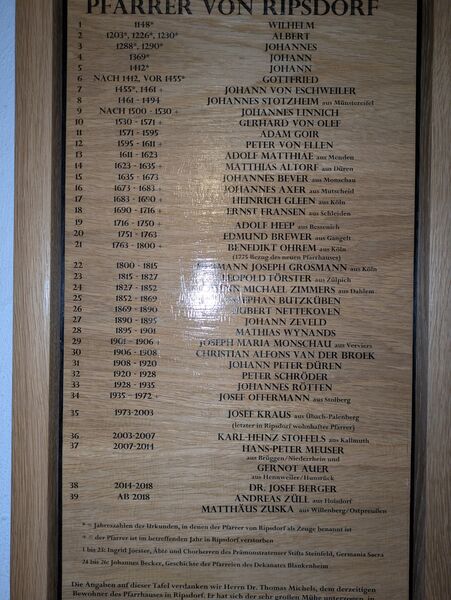 PFARRER VON RIPSDORF
1 1148* WILHELM
2 1203*, 1226*, 1230* ALBERT
3 1288*, 1290* JOHANNES
4 1369* JOHANN
5 1412* JOHANN
6 NACH 1412, VOR 1455* GOTTFRIED
7 1455*, 1461 + JOHANN VON ESCHWEILER
8 1461 - 1494 JOHANNES STOTZHEIM aus Münstereifel
9 NACH 1500 - 1530 + JOHANNES LINNICH
10 1530 - 1571 + GERHARD VON OLEF
11 1571 - 1595 ADAM GOIR
12 1595 - 1611 + PETER VON ELLEN
13 1611 - 1623 ADOLF MATTHIAE aus Menden
14 1623 - 1635 + MATTHIAS ALTORF aus Düren
15 1635 - 1673 JOHANNES BEVER aus Monschau
16 1673 - 1683 + JOHANNES AXER aus Mutscheid
17 1683 - 1690 + HEINRICH GLEEN aus Köln
18 1690 - 1716 + ERNST FRANSEN aus Schleiden
19 1716 - 1750 + ADOLF HEEP aus Bessenich
20 1751 - 1763 EDMUND BREWER aus Gangelt
21 1763 - 1800 + BENEDIKT OHREM aus Köln
(1775 Bezug des neuen Pfarrhauses)
22 1800 - 1815 HERMANN JOSEPH GROSMANN aus Köln
23 1815 - 1827 LEOPOLD TÖRSTER aus Zülpich
24 1827 - 1852 MICHAEL ZIMMERS aus Dahlem
25 1852 - 1869 STEPHAN BUTZKÜBEN
26 1869 - 1890 HUBERT NETTEKOVEN
27 1890 - 1895 JOHANN ZEVELD
28 1895 - 1901 MATHIAS WYNANDS
29 1901 - 1906 + JOSEPH MARIA MONSCHAU aus Verviers
30 1906 - 1908 CHRISTIAN ALFONS VAN DER BROEK
31 1908 - 1920 JOHANN PETER DÜREN
32 1920 - 1928 PETER SCHRÖDER
33 1928 - 1935 JOHANNES RÖTTEN
34 1935 - 1972 + JOSEF OFFERMANN aus Stolberg
35 1973-2003 JOSEF KRAUS aus Übach-Palenberg
(letzter in Ripsdorf wohnhafter Pfarrer)
36 2003-2007 KARL-HEINZ STOFFELS aus Kallmuth
37 2007-2014 HANS-PETER MEUSER
aus Brüggen/Niederrhein und
GERNOT AUER
aus Hennweiler/Hunsrück
38 2014-2018 DR. JOSEF BERGER
39 AB 2018 ANDREAS ZÜLL aus Holzdorf
MATTHÄUS ZUSKA aus Willenberg/Ostpreußen
* = Jahreszahlen der Urkunden, in denen der Pfarrer von Ripsdorf als Zeuge benannt ist
+ = der Pfarrer ist im betreffenden Jahr in Ripsdorf verstorben
1 bis 23: Ingrid Joester, Äbte und Chorherren des Prämonstratenser Stifts Steinfeld, Germania Sacra
24 bis 26: Johannes Becker, Geschichte der Pfarreien des Dekanates Blankenheim
Die Angaben auf dieser Tafel verdanken wir Herrn Dr. Thomas Michels, dem derzeitigen
Bewohner des Pfarrhauses in Ripsdorf. Er hat sich der sehr großen Mühe unterzogen, in